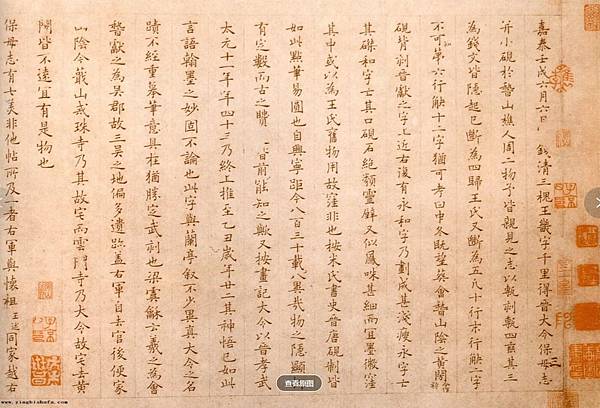 嘉泰壬戌六月六日錢清三槐王畿字千里得晉大令保母志
并小硯於稽山樵人周二物予皆親見之志以甎刻甎四垂其三
為錢文皆隱起已斷為四歸王氏又斷為五凡十行末行缺二字
不可知第六行缺十二字猶可考曰中冬既望葬會稽山陰之黃閍
硯背刻晉獻之字上近右復有永和字乃劃成甚淺瘦永字亡
其磔和字亡其口硯石絕類靈壁又似鳳咮甚細而宜墨微窪
其中或以為王氏舊物用故窪非也按米氏書史晉唐硯制皆
如此點筆易圓也自興寧距今八百三十載異哉物之隱顯
有定數而古之賢者前能知之歟又按畫記大令以晉孝武
太元十一年年四十三乃終上推至乙丑歲年廿二其神悟已如此
言語翰墨之妙固不論也此字與蘭亭敘不少異真大令之名
蹟不經重摹筆意具在猶勝定武刻也梁虞龢云羲之為會
稽獻之為吳郡故三吳之地偏多遺跡蓋右軍自去官後便家
山陰今蕺山戒珠寺乃其故宅而雲門寺乃大令故宅去黃
閍皆不遠宜有是物也
保母志有七美非他帖所及一者右軍與懷祖王述同家越右
查看原图
www.yingbishufa.com